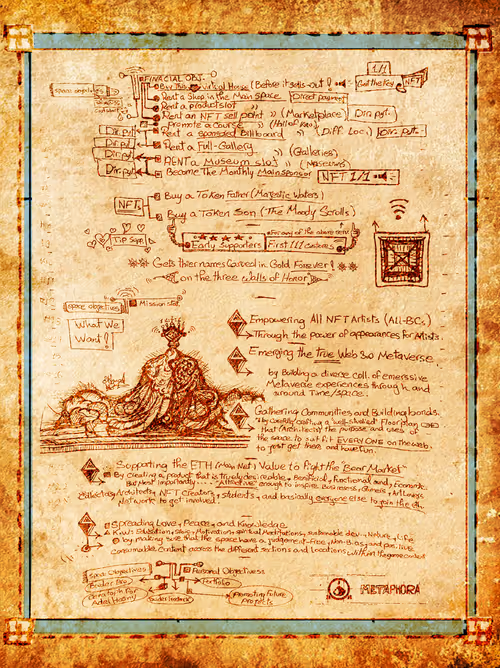 FINACIAL OBJ.
Space Supplies
Buy the Vertical House (Before it sells-out!
1/1
Get the Key
NFT
Rent a Shop in the Main Space
Direct payment
Rent a product slot "
Rent an NFT sell point " (Marketplace) Dir. pyt.
promote a Course "
Dir. pyt.
Rent a sponsored Billboard " (Diff. Loc.) Dir. pyt.
Dir. pyt.
Rent a Full-Gallery " (Galleries)
Dir. pyt.
RENT a Museum slot " (Museums)
Dir. pyt.
Became The Monthly Mainsponsor NFT 1/1
NFTs
Buy a Token Father (Majestic Waters)
Buy a Token Son (The Moody Scrolls)
Tip Supp.
For any of the above serv.
Early Supporters
First 111
Gets thier names Carved in Gold Forever!
on the three Walls of Honor
Space objectives
Mission st.
What We
Want?
Empowering All NFT Artists (ALL-BCs)
Through the power of appearances for Artists.
Emerging the true Web 3.0 Metaverse
by Building a diverce coll. of emerssive
Metaverse experiences through and
around Time/space.
Gathering Communities and Building bonds.
By carefully crafting a "well-studied" Floor plan
that (Architects) the purpose and uses of
the space to suit it EVERYONE on the web.
to just get there and have fun.
Supporting the ETH (Main Net) Value to Fight the Bear Market
By creating a product that is truly desireable, Beneficial, Functional and, Economic.
But Most importantly... "Attractive" enough to inspire Business, Gamers, Art Lovers
Collectors, Architects, NFT Creators, students, and basically everyone else to join the eth.
Network to get involved.
Spreading Love, Peace, and Knowledge
by making sure that the space have a judgement-free, Non-Bias, and positive
consumable content across the different sections and locations within the game
Space Objectives
Personal Objectivess
Portfolio
Promoting Future
Projects
METAPHORA